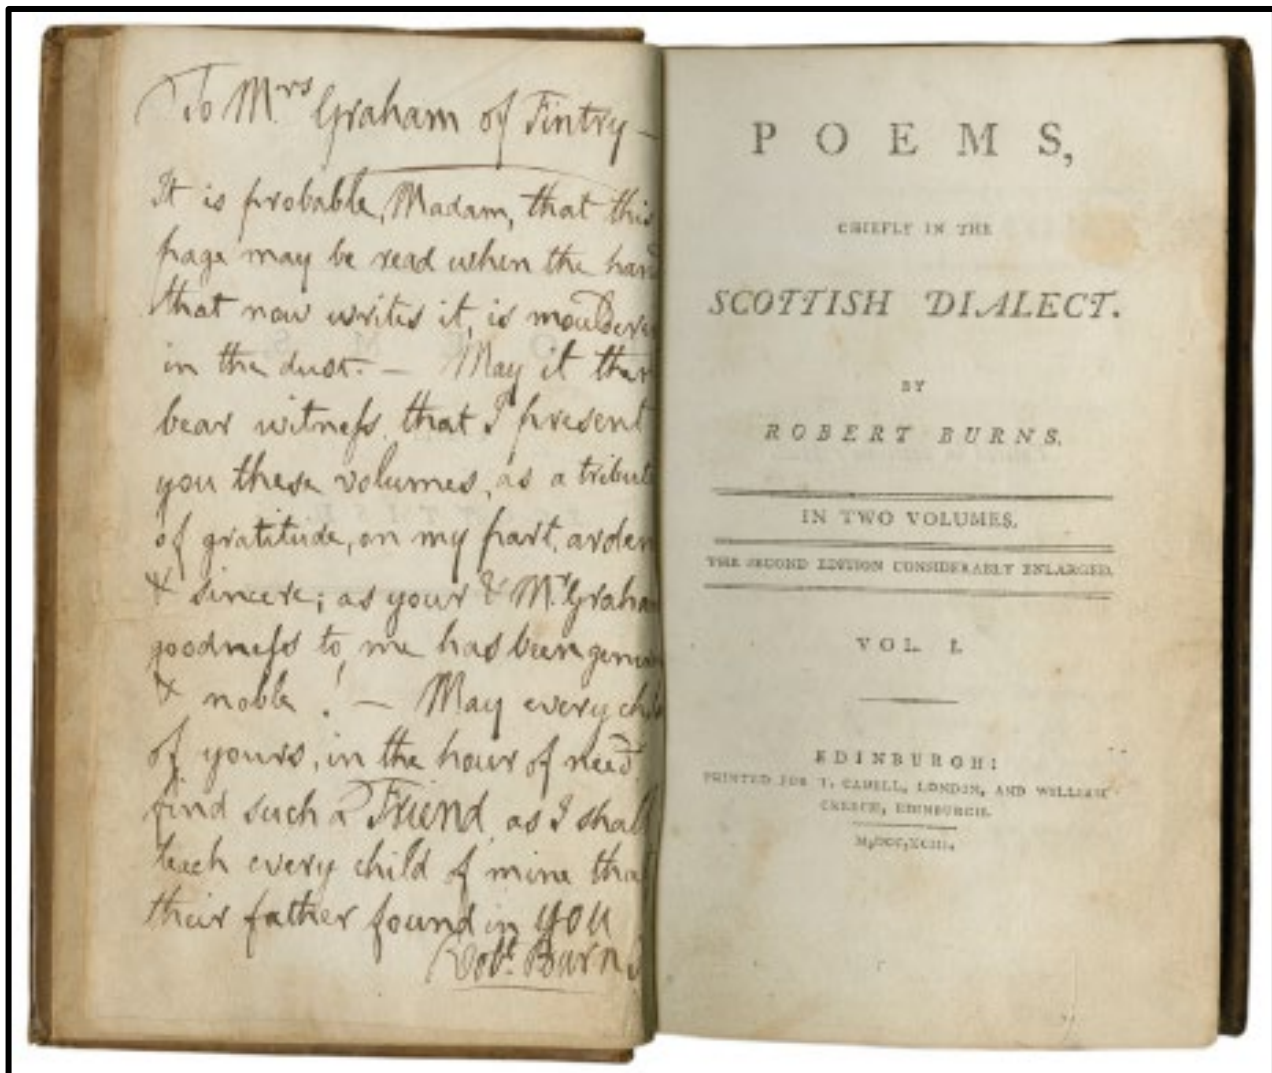 To Mrs Graham of Fintry —
It is probable, Madam, that this
page may be read when the hand
that now writes it, is mouldering
in the dust. — May it then
bear witneſs, that I present
you these volumes, as a tribute
of gratitude, on my part, ardent
& sincere; as your & Mr Graham
goodneſs to me has been genuine
& noble! — May every child
of yours, in the hour of need,
find such a Friend, as I shall
teach every child of mine that
their father found in YOU
Robt. Burns
POEMS,
CHIEFLY IN THE
SCOTTISH DIALECT.
BY
ROBERT BURNS.
IN TWO VOLUMES.
THE SECOND EDITION CONSIDERABLY ENLARGED.
VOL. I.
EDINBURGH:
PRINTED FOR T. CADELL, LONDON, AND WILLIAM
CREECH, EDINBURGH.
M,DCC,XCIII.